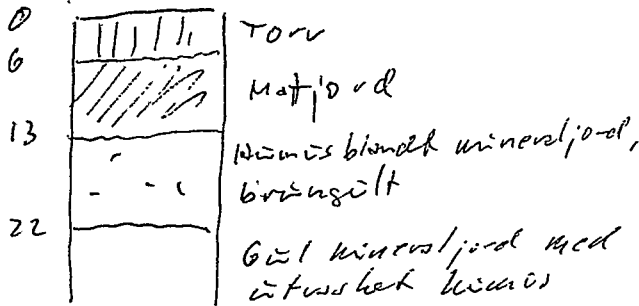 0
Torv
6
Matjord
13
Humus blandt mineraljord,
brungult
22
Gul mineraljord med
utvasket humus